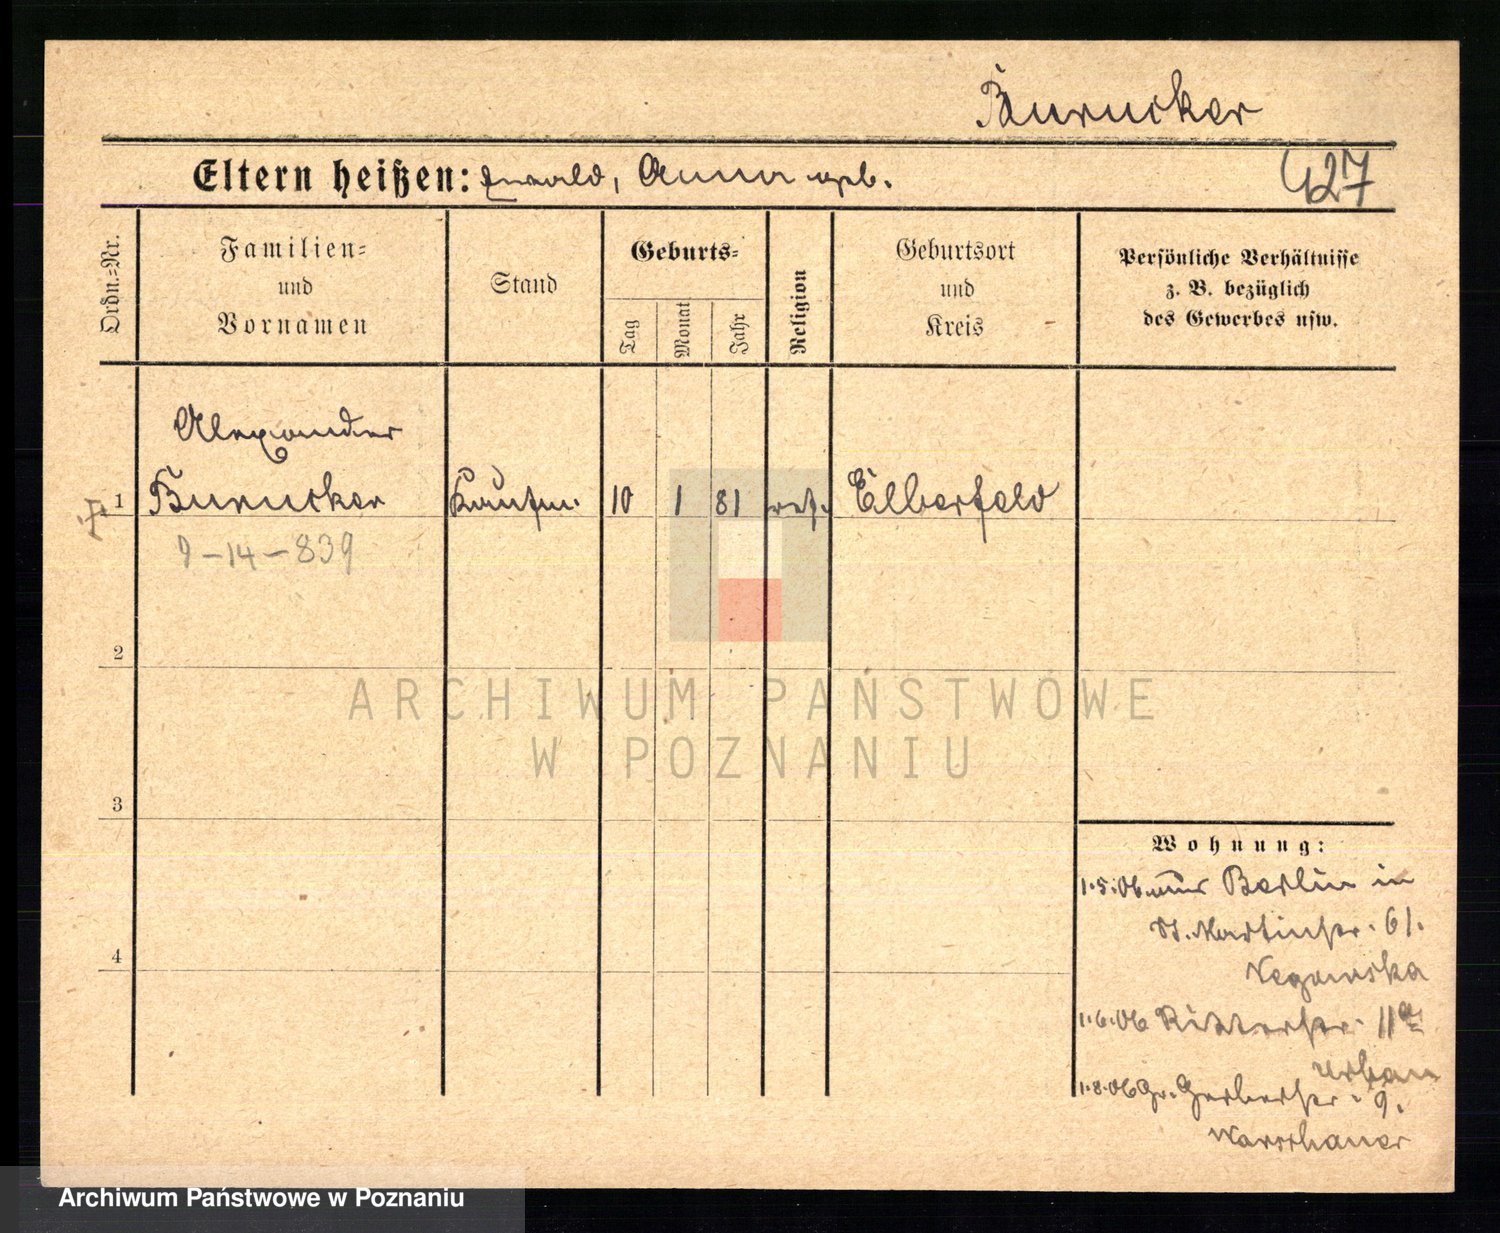 Burucker
427
Eltern heißen: Ewald, Anna geb.
Ordn.=Nr.
Familien=
und
Vornamen
Stand
Geburts=
Tag
Monat
Jahr
Religion
Geburtsort
und
Kreis
Persönliche Verhältnisse
z. B. bezüglich
des Gewerbes usw.
Alexander
1 Burucker Kaufm. 10 1 81 ref. Elberfeld
9-14-839
2
3
4
Wohnung:
1.5.06 aus Berlin in
St. Martinstr. 61.
1.6.06 Ritterstr. 11a
Urban
1.8.06 Gr. Gerberstr. 9.
Warschauer
ARCHIWUM PAŃSTWOWE
W POZNANIU
Archiwum Państwowe w Poznaniu